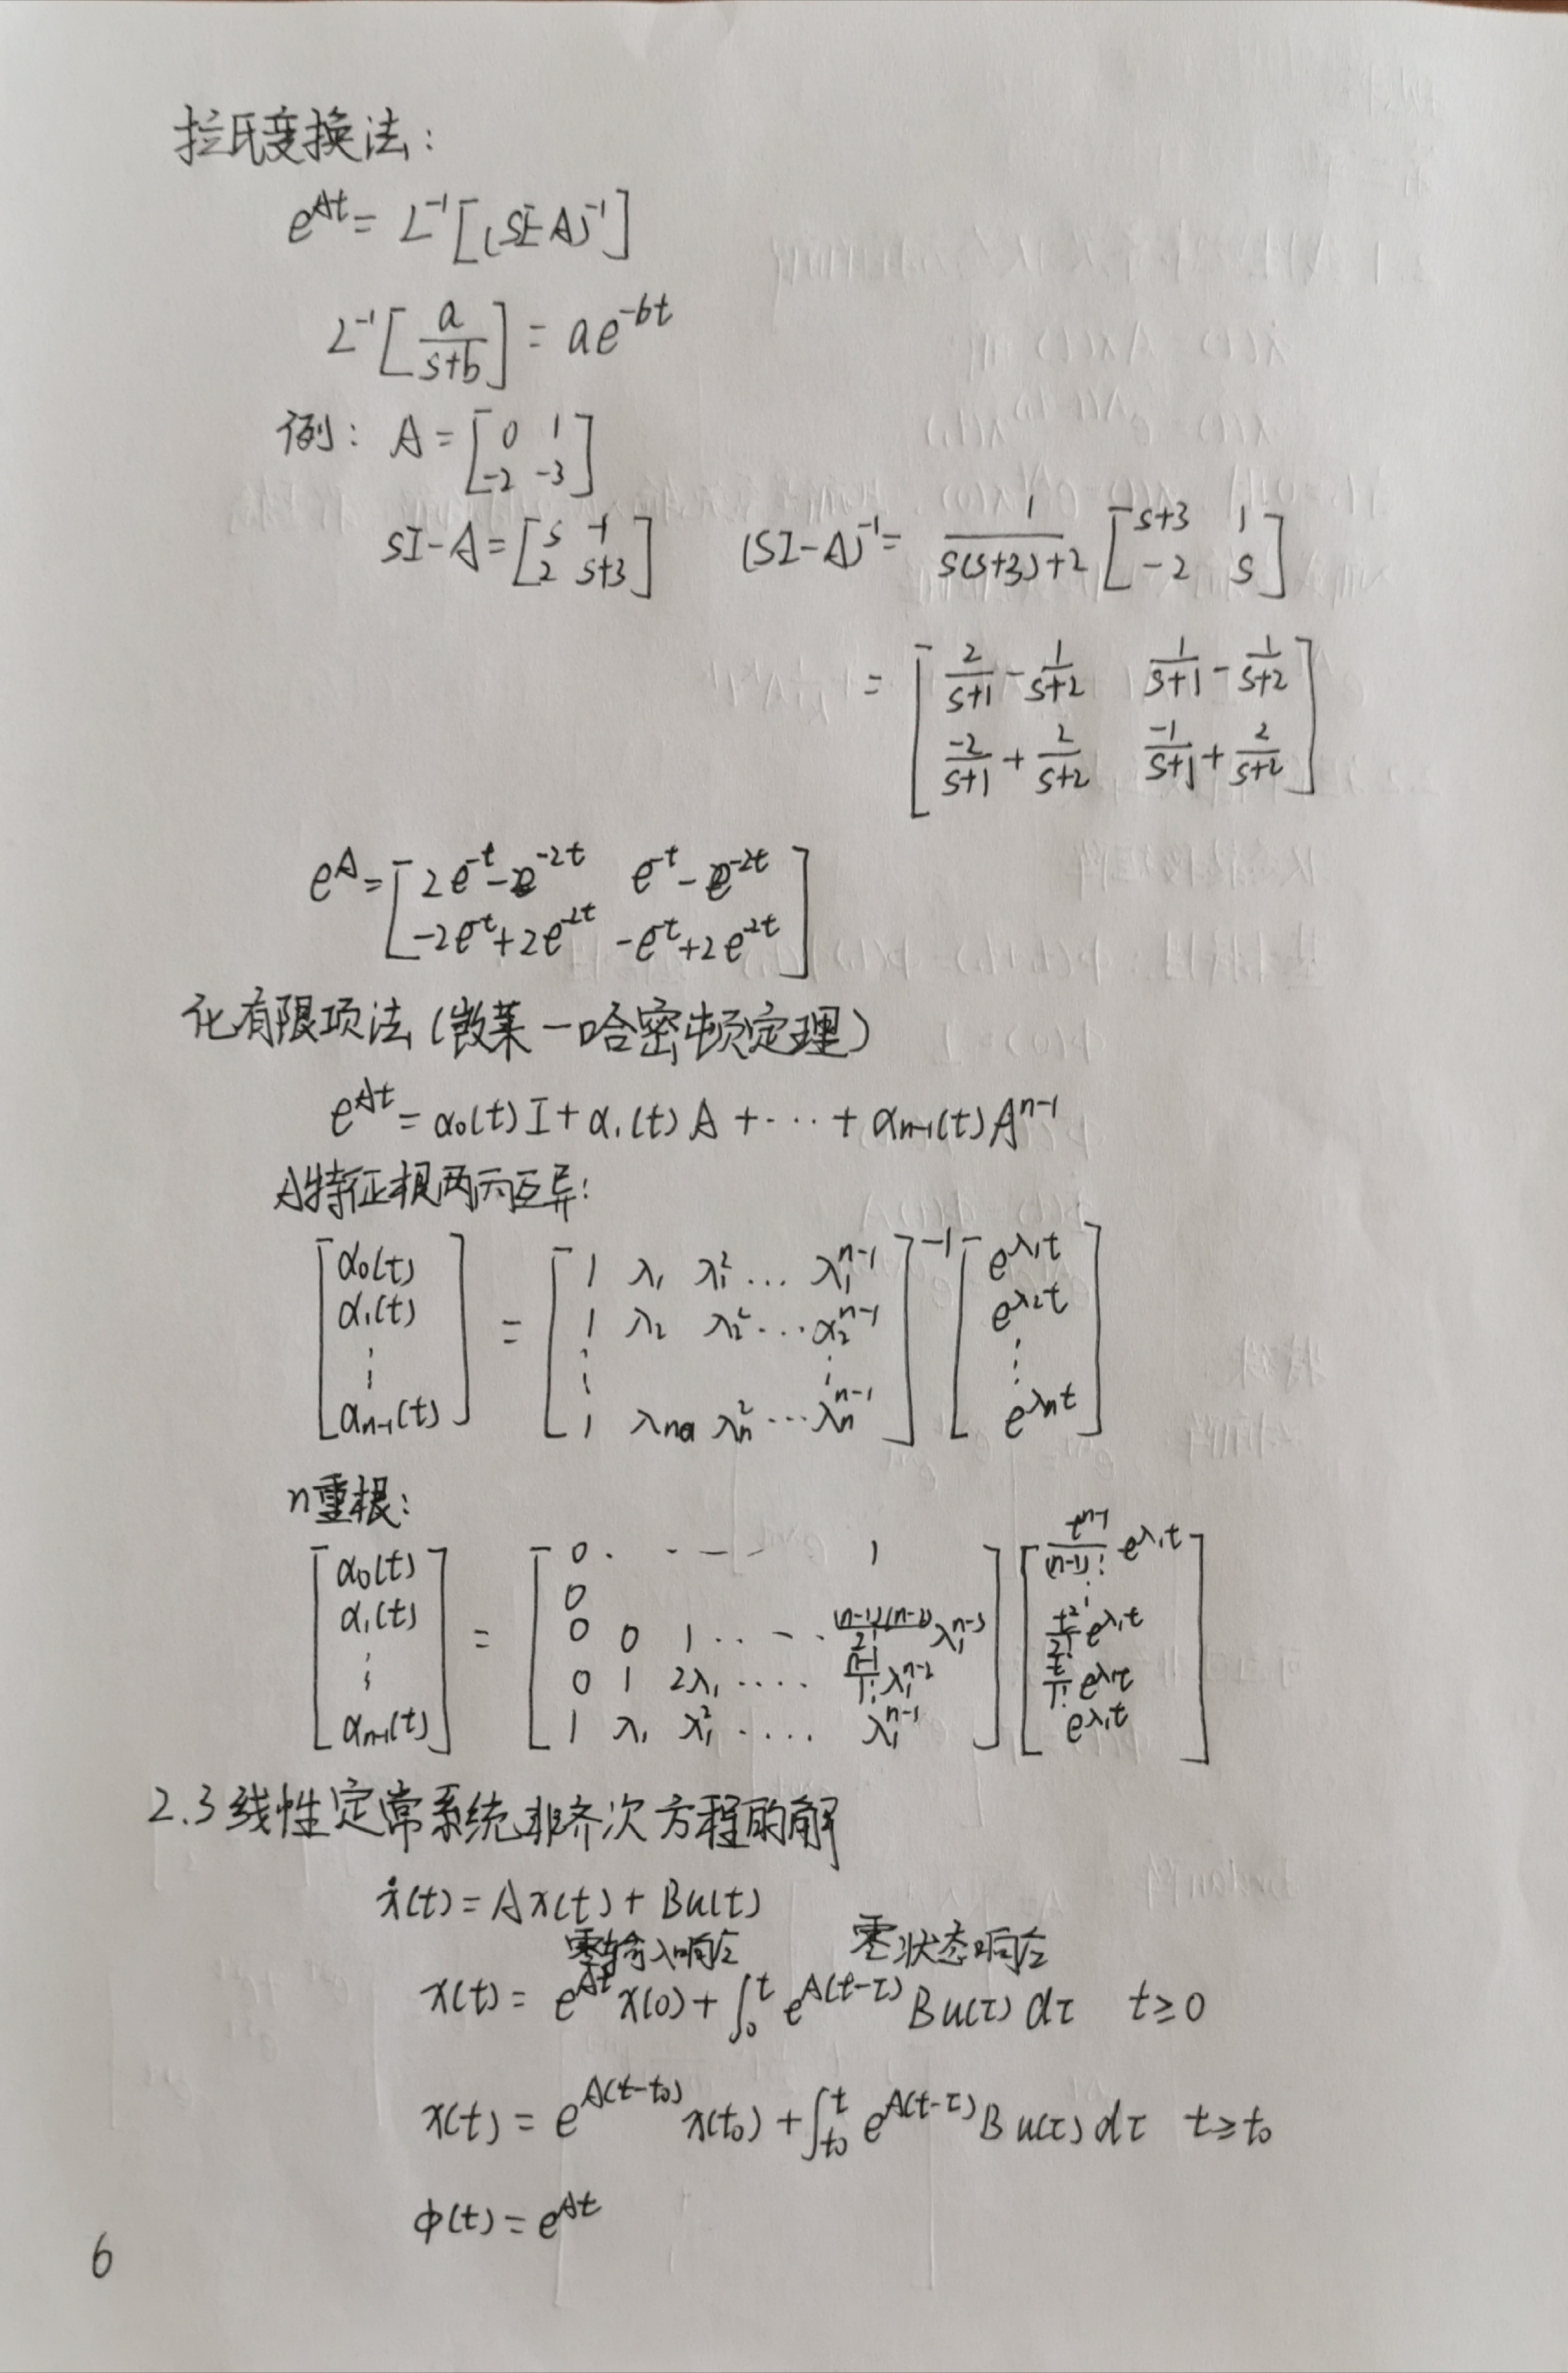 拉氏变换法：
e^{At} = L^{-1}[(sI-A)^{-1}]
L^{-1}[a/(s+b)] = ae^{-bt}
例：A = [0 1; -2 -3]
sI-A = [s -1; 2 s+3]  (sI-A)^{-1} = 1/(s(s+3)+2) [s+3 1; -2 s]
= [2/(s+1) - 1/(s+2)  1/(s+1) - 1/(s+2); -2/(s+1) + 2/(s+2)  -1/(s+1) + 2/(s+2)]
e^A = [2e^{-t}-e^{-2t}  e^{-t}-e^{-2t}; -2e^{-t}+2e^{-2t}  -e^{-t}+2e^{-2t}]
化有限项法（凯莱一哈密顿定理）
e^{At} = α₀(t)I + α₁(t)A + ··· + α_{n-1}(t)A^{n-1}
A特征根两两互异：
[α₀(t); α₁(t); ⋮; α_{n-1}(t)] = [1 λ₁ λ₁² ... λ₁^{n-1}; 1 λ₂ λ₂² ... α₂^{n-1}; ⋮ ⋮; 1 λn λn² ... λn^{n-1}]^{-1} [e^{λ₁t}; e^{λ₂t}; ⋮; e^{λnt}]
n重根：
[α₀(t); α₁(t); ⋮; α_{n-1}(t)] = [0 ···· 1; 0; 0 0 1 ···· (n-1)(n-2)/2! λ₁^{n-3}; 0 1 2λ₁ ···· (n-1)/1! λ₁^{n-2}; 1 λ₁ λ₁² ···· λ₁^{n-1}] [t^{n-1}/(n-1)! e^{λ₁t}; ⋮; t²/2! e^{λ₁t}; t/1! e^{λ₁t}; e^{λ₁t}]
2.3 线性定常系统非齐次方程的解
ẋ(t) = Ax(t) + Bu(t)
零输入响应 零状态响应
x(t) = e^{At}x(0) + ∫₀^t e^{A(t-τ)}Bu(τ)dτ  t≥0
x(t) = e^{A(t-t₀)}x(t₀) + ∫_{t₀}^t e^{A(t-τ)}Bu(τ)dτ  t≥t₀
φ(t) = e^{At}
6